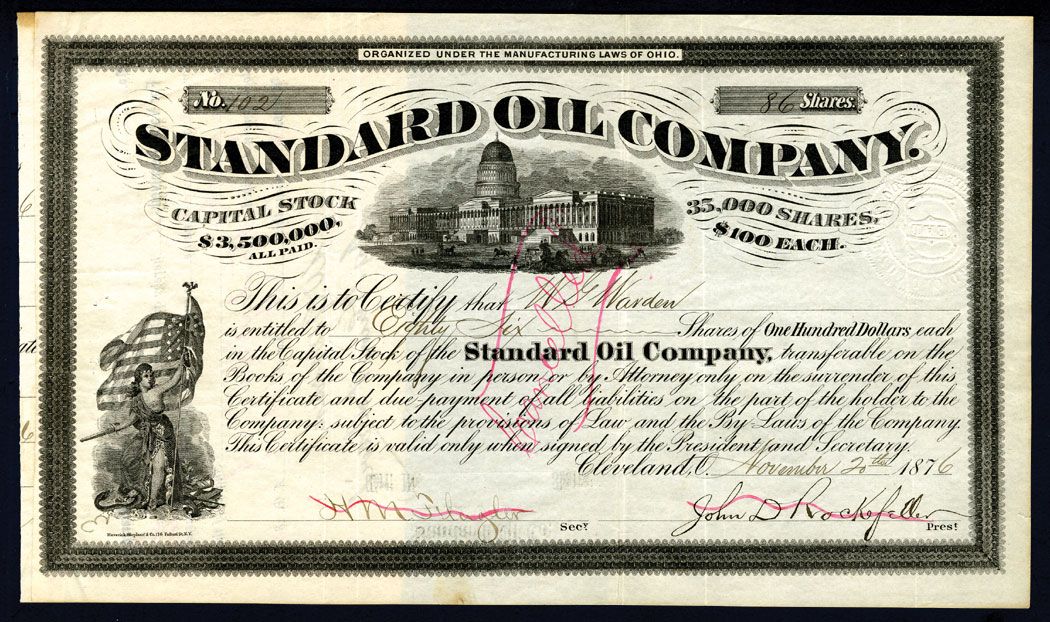 ORGANIZED UNDER THE MANUFACTURING LAWS OF OHIO.
No. 1021
86 Shares.
STANDARD OIL COMPANY.
CAPITAL STOCK
$3,500,000,
ALL PAID.
35,000 SHARES,
$100 EACH.
This is to Certify that W G Warden
is entitled to Eighty Six Shares of One Hundred Dollars, each
in the Capital Stock of the Standard Oil Company, transferable on the
Books of the Company in person or by Attorney only on the surrender of this
Certificate and due payment of all liabilities on the part of the holder to the
Company: subject to the provisions of Law and the By-Laws of the Company.
This Certificate is valid only when signed by the President and Secretary.
Cleveland, O. November 20th 1876
H M Flagler Secy.
John D Rockefeller Prest.
Cancelled